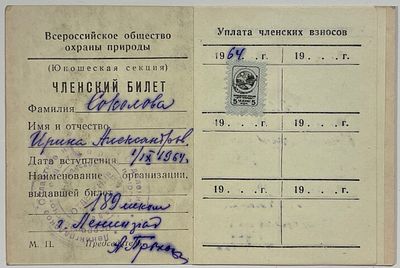 Всероссийское общество
охраны природы
(Юношеская секция)
ЧЛЕНСКИЙ БИЛЕТ
Фамилия Соколова
Имя и отчество
Ирина Александров.
Дата вступления 1/IX 1964г.
Наименование организации,
выдавшей билет
189 школ
г. Ленинград
М. П. Председатель
Уплата членских взносов
1964. г. 19 . . . г.
5 5
19 . . . г. 19 . . . г.
19 . . . г. 19 . . . г.